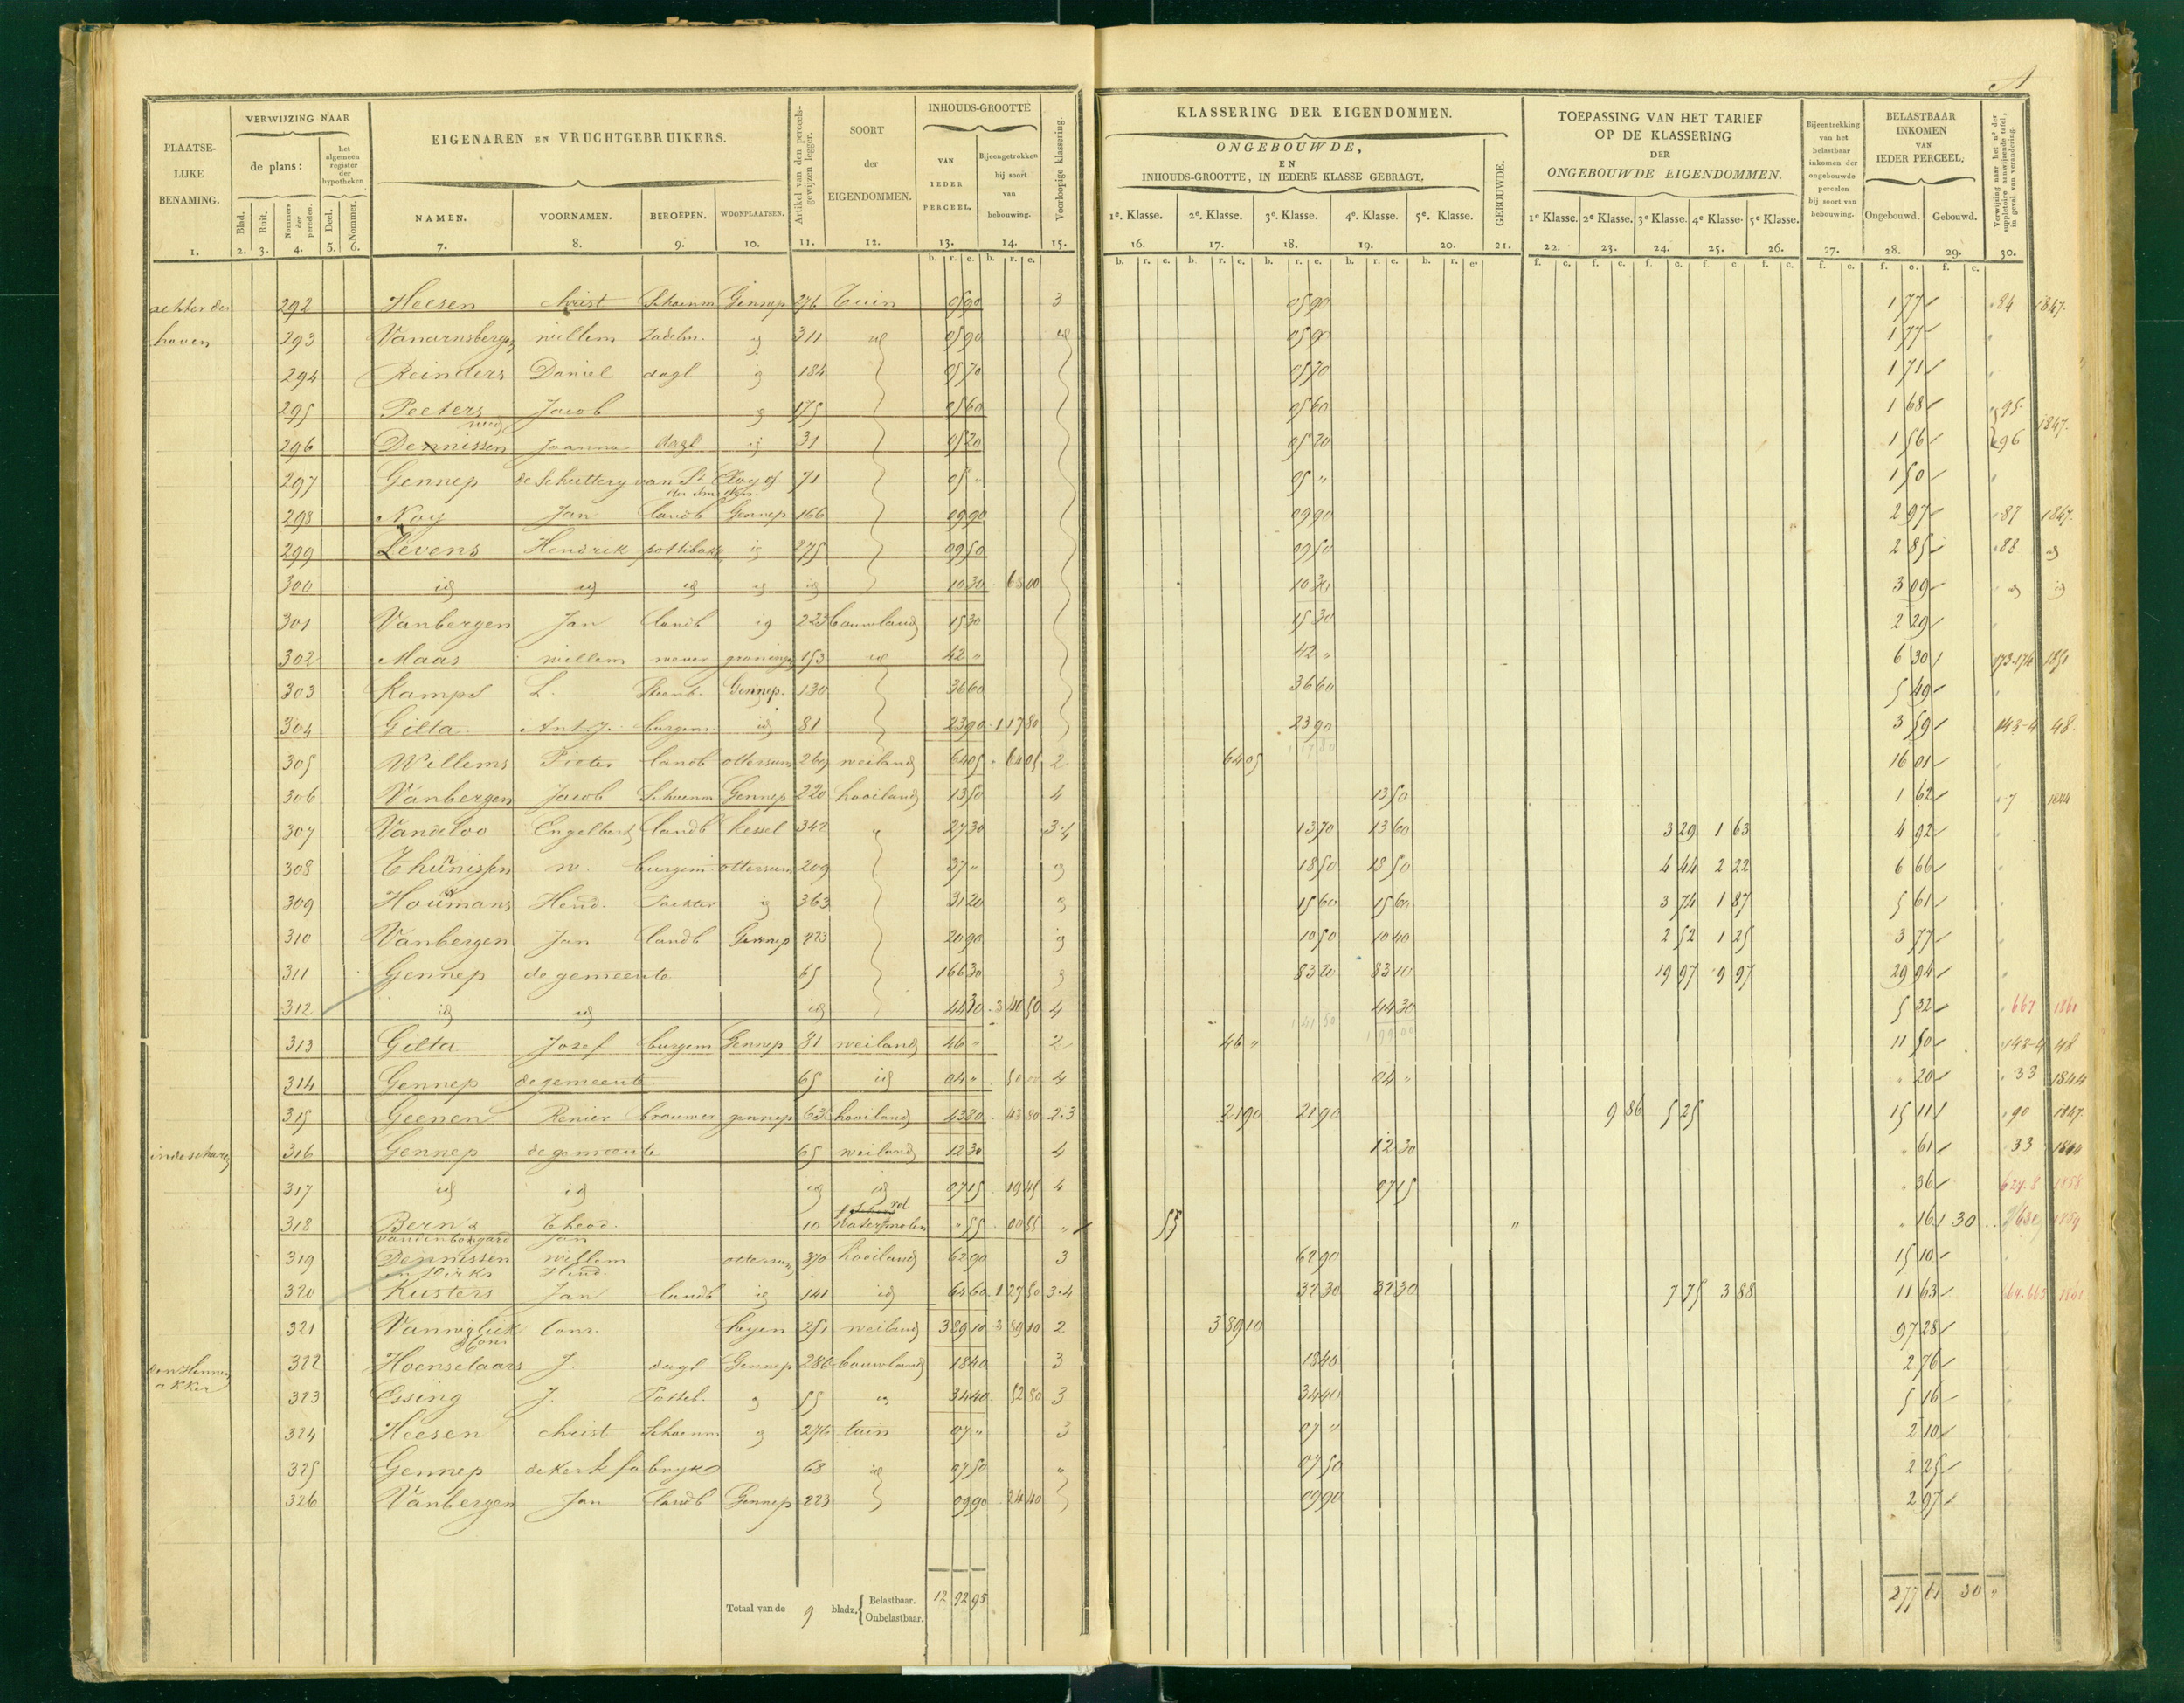 PLAATSELIJKE BENAMING.
VERWIJZING NAAR
de plans :
het algemeen register der hypotheken
Blad.
Ruit.
Nommers der perceelen.
Deel.
Nommer.
EIGENAREN EN VRUCHTGEBRUIKERS.
NAMEN.
VOORNAMEN.
BEROEPEN.
WOONPLAATSEN.
Artikel van den perceelsgewijzen legger.
SOORT der EIGENDOMMEN.
INHOUDS-GROOTTE
VAN IEDER PERCEEL.
Bijeengetrokken bij soort van bebouwing.
Voorloopige klassering.
KLASSERING DER EIGENDOMMEN.
ONGEBOUWDE, EN INHOUDS-GROOTTE, IN IEDERE KLASSE GEBRAGT,
1e. Klasse. 2e. Klasse. 3e. Klasse. 4e. Klasse. 5e. Klasse.
GEBOUWDE.
TOEPASSING VAN HET TARIEF OP DE KLASSERING DER ONGEBOUWDE EIGENDOMMEN.
1e Klasse. 2e Klasse. 3e Klasse. 4e Klasse. 5e Klasse.
Bijeentrekking van het belastbaar inkomen der ongebouwde percelen bij soort van bebouwing.
BELASTBAAR INKOMEN VAN IEDER PERCEEL.
Ongebouwd. Gebouwd.
Verwijzing naar het no der suppletoire aanwijzende tafel, in geval van verandering.
1. 2. 3. 4. 5. 6. 7. 8. 9. 10. 11. 12. 13. 14. 15. 16. 17. 18. 19. 20. 21. 22. 23. 24. 25. 26. 27. 28. 29. 30.
achter den 292 Heesen christ Schoenm Gennep 276 Tuin 05 90 3 05 90 1 77 84 1847.
hoven 293 Vanarnsbergen willem Zadelm. id 311 id 05 90 id 05 90 1 77
294 Reinders Daniel dagl id 184 05 70 05 70 1 71
295 Peeters Jacob id 175 05 60 05 60 1 68 95
296 Dennissen Joanna dagl id 31 05 20 05 20 1 56 96 1847.
297 Gennep de Schuttery van St Eloy of 71 05 " 05 " 1 50
298 Noy Jan landb Gennep 166 09 90 09 90 2 97 87 1847.
299 Levens Hendrik pottebakk id 275 09 50 09 50 2 85 88 id
300 id id id id id 10 30 68 00 10 30 3 09 id id
301 Vanbergen Jan landb id 223 bouwland 15 30 15 30 2 29
302 Maas willem wever groningen 153 id 42 " 42 " 6 30 173-174 1851
303 Kamps L. Gennep. 130 36 60 36 60 5 49
304 Gilta Ant. J. burgem id 81 23 90 1 17 80 23 90 3 59 143-4 48.
305 Willems Pieter landb ottersum 269 weiland 64 05 64 05 2 64 05 16 01
306 Vanbergen Jacob Schoenm Gennep 220 hooiland 13 50 4 13 50 1 62 7 1844
307 Vandeloo Engelbert landb kessel 342 " 27 30 3.4 13 70 13 60 3 29 1 63 4 92
308 Thünissen w. burgem ottersum 209 37 " id 18 50 18 50 4 44 2 22 6 66
309 Houmans Hend. Pachter id 363 31 20 id 15 60 15 60 3 74 1 87 5 61
310 Vanbergen Jan landb Gennep 223 20 90 id 10 50 10 40 2 52 1 25 3 77
311 Gennep de gemeente 65 1 66 30 id 83 20 83 10 19 97 9 97 29 94
312 id id id 44 30 3 40 50 4 44 30 5 32 667 1861
313 Gilta Jozef burgem Gennep 81 weiland 46 " 2 46 " 11 50 143-4 48
314 Gennep de gemeente 65 id 04 " 50 4 04 " 20 33 1844
315 Geenen Renier brouwer gennep 63 hooiland 43 80 43 80 2.3 21 90 21 90 9 86 5 25 15 11 90 1847.
316 Gennep de gemeente 65 weiland 12 30 4 12 30 61 33 1844
317 id id id id 07 15 19 45 4 07 15 36 627.8 1858
318 Bern Theod. 10 watermolen " 55 00 55 " 55 " 16 1 30 1859
vandenbongard Jan
319 Dennissen willem ottersum 370 hooiland 62 90 3 62 90 15 10
en Dirks Hend.
320 Kusters Jan landb id 141 id 64 60 1 27 50 3.4 32 30 32 30 7 75 3 88 11 63
321 Vanwylick Conr. heyen 251 weiland 3 89 10 3 89 10 2 3 89 10 97 28
322 Hoenselaars J. dagl Gennep 286 bouwland 18 40 3 18 40 2 76
akker 323 Essing J. id 55 id 34 40 52 80 3 34 40 5 16
324 Heesen christ Schoenm id 276 tuin 07 " 3 07 " 2 10
325 Gennep de Kerk fabryke 68 id 07 50 " 07 50 2 25
326 Vanbergen Jan landb Gennep 223 09 90 24 40 09 90 2 97
Totaal van de 9 bladz. Belastbaar. 12 92 95
Onbelastbaar.
277 61 1 30 "